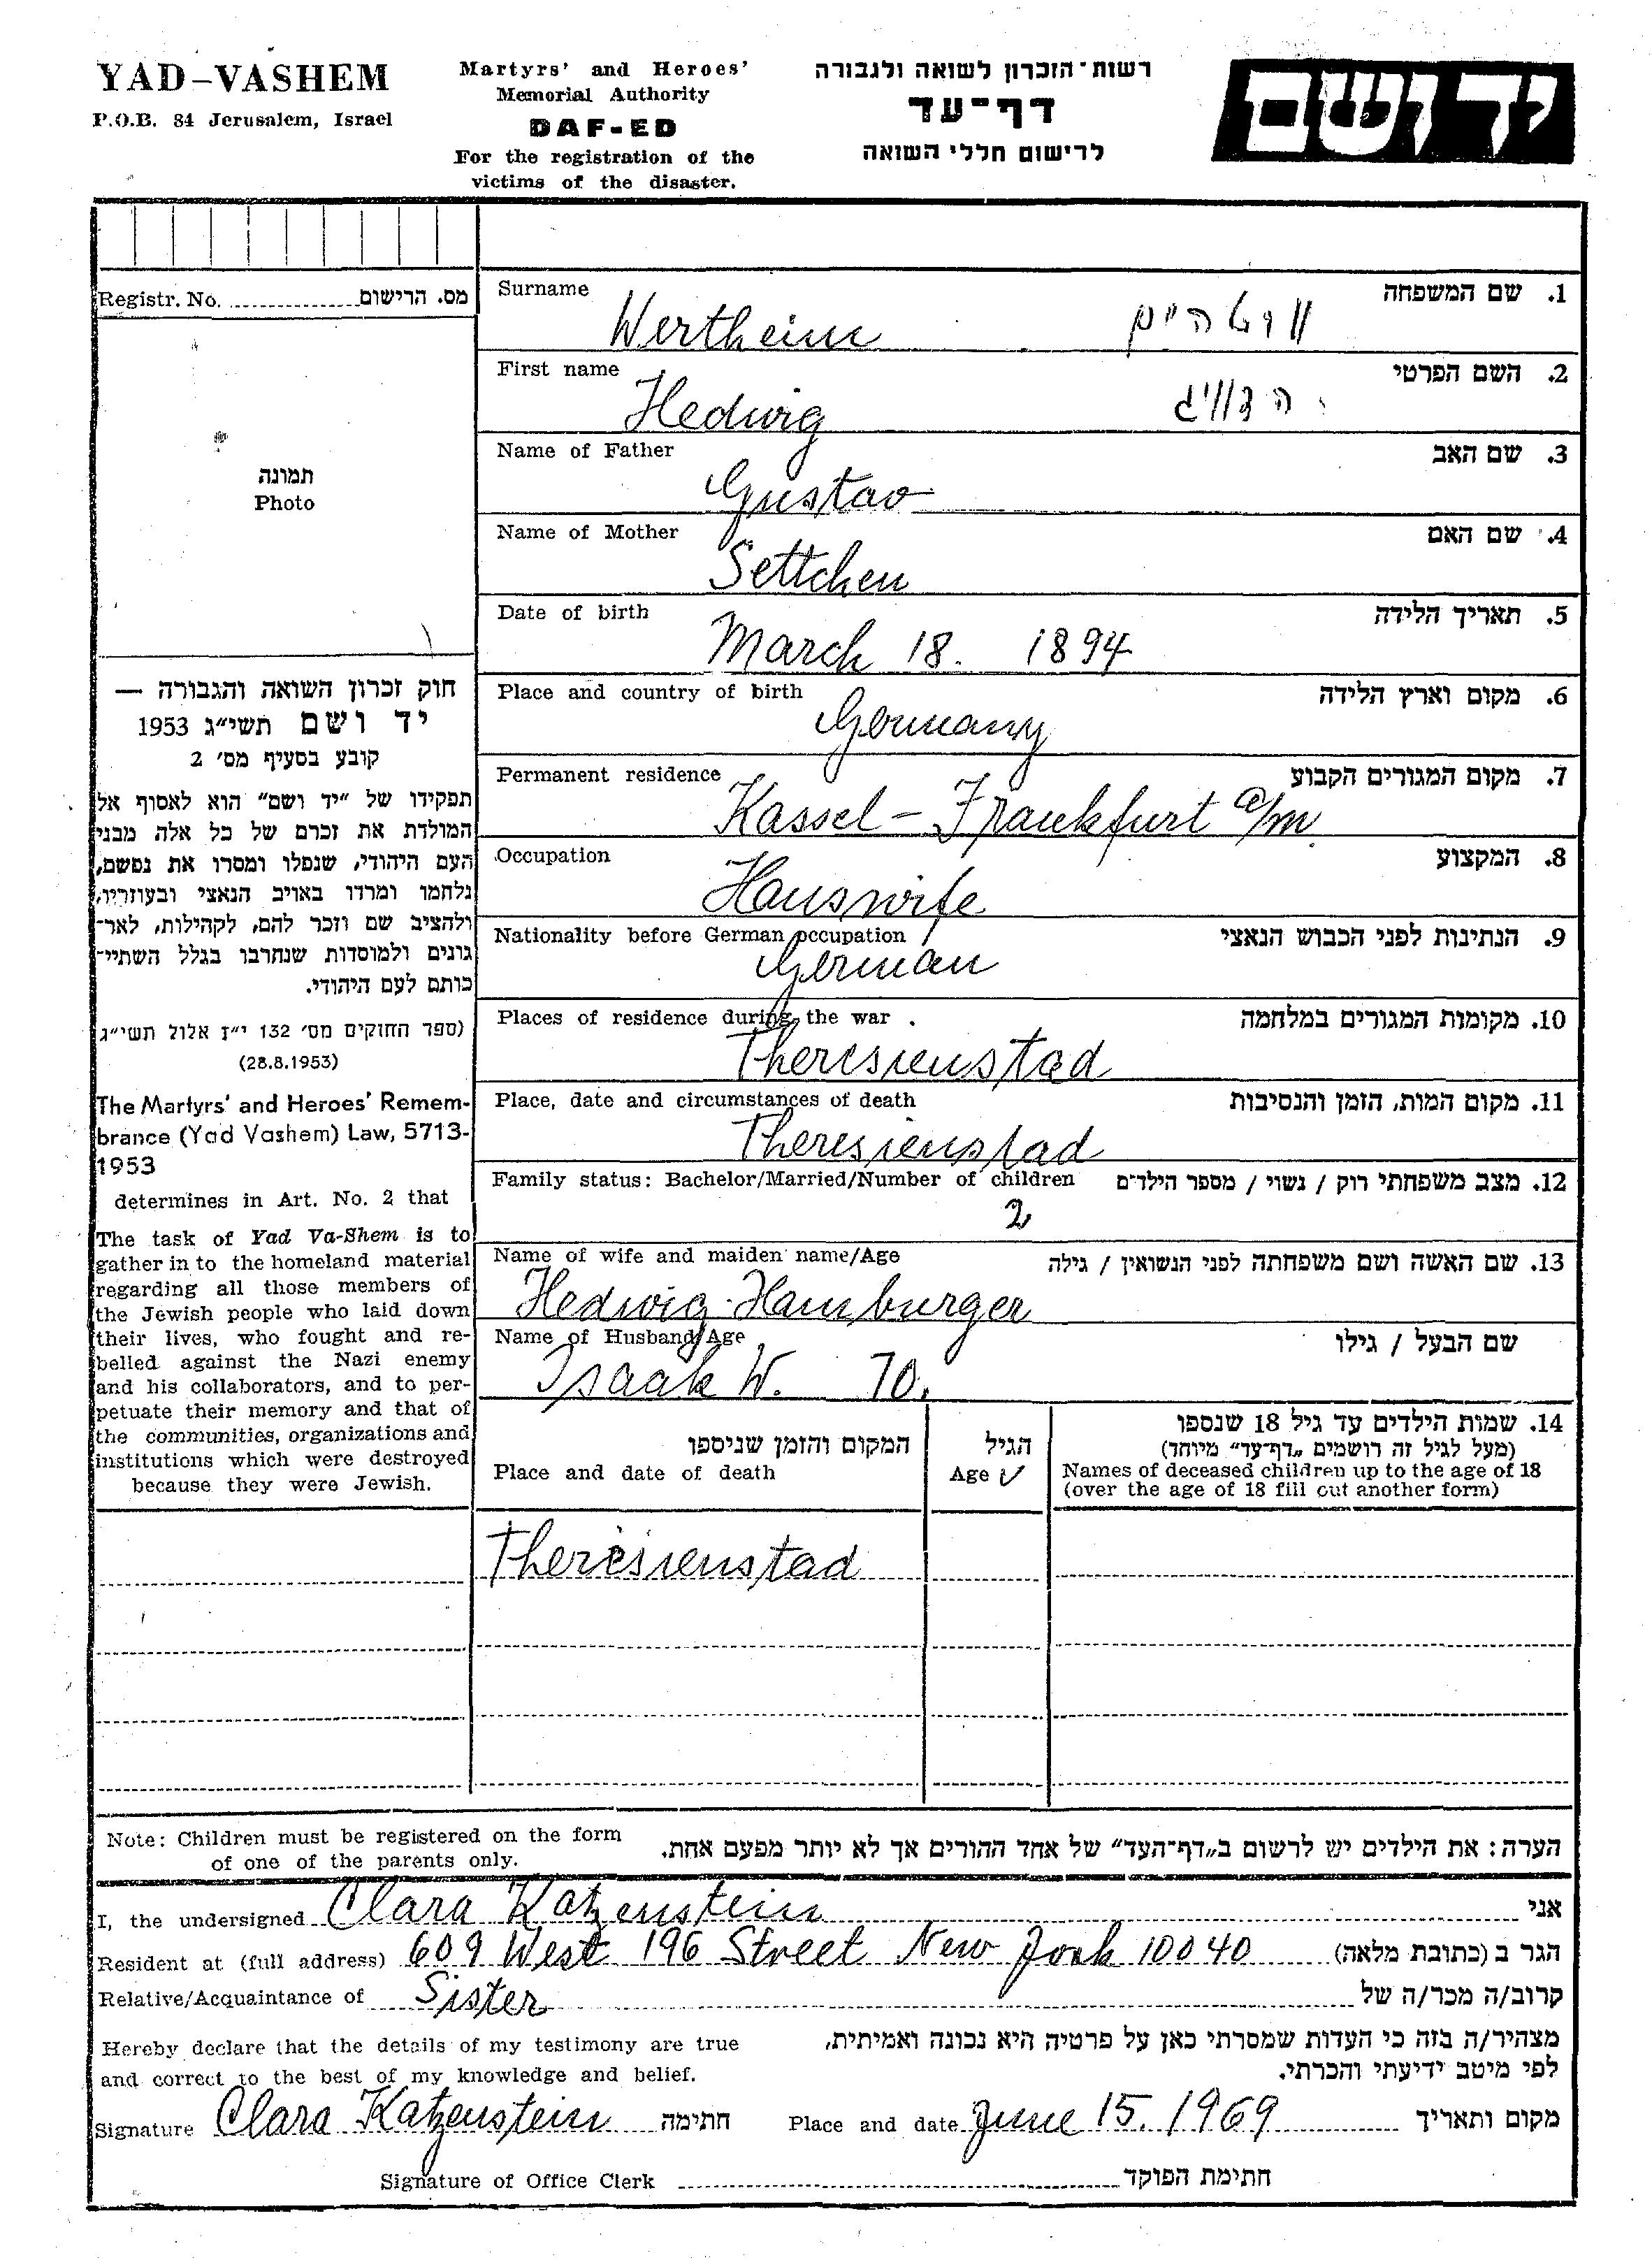 YAD-VASHEM
P.O.B. 84 Jerusalem, Israel
Martyrs' and Heroes'
Memorial Authority
DAF-ED
For the registration of the
victims of the disaster.
רשות־הזכרון לשואה ולגבורה
דף־עד
לרישום חללי השואה
יד ושם
Registr. No. מס. הרישום
תמונה
Photo
חוק זכרון השואה והגבורה —
יד ושם תשי״ג 1953
קובע בסעיף מס׳ 2
תפקידו של ״יד ושם״ הוא לאסוף אל
המולדת את זכרם של כל אלה מבני
העם היהודי, שנפלו ומסרו את נפשם,
נלחמו ומרדו באויב הנאצי ובעוזריו,
ולהציב שם וזכר להם, לקהילות, לאר־
גונים ולמוסדות שנחרבו בגלל השתיי־
כותם לעם היהודי.
(ספר החוקים מס׳ 132 י״ז אלול תשי״ג
(28.8.1953)
The Martyrs' and Heroes' Remem-
brance (Yad Vashem) Law, 5713-
1953
determines in Art. No. 2 that
The task of Yad Va-Shem is to
gather in to the homeland material
regarding all those members of
the Jewish people who laid down
their lives, who fought and re-
belled against the Nazi enemy
and his collaborators, and to per-
petuate their memory and that of
the communities, organizations and
institutions which were destroyed
because they were Jewish.
Surname 1. שם המשפחה
Wertheim וורטהיים
First name 2. השם הפרטי
Hedwig הדוויג
Name of Father 3. שם האב
Gustav
Name of Mother 4. שם האם
Settchen
Date of birth 5. תאריך הלידה
March 18. 1894
Place and country of birth 6. מקום וארץ הלידה
Germany
Permanent residence 7. מקום המגורים הקבוע
Kassel - Frankfurt a/m
Occupation 8. המקצוע
Hauswife
Nationality before German occupation 9. הנתינות לפני הכבוש הנאצי
German
Places of residence during the war 10. מקומות המגורים במלחמה
Theresienstad
Place, date and circumstances of death 11. מקום המות, הזמן והנסיבות
Theresienstad
Family status: Bachelor/Married/Number of children 12. מצב משפחתי רוק / נשוי / מספר הילדים
2
Name of wife and maiden name/Age 13. שם האשה ושם משפחתה לפני הנשואין / גילה
Hedwig Hamburger
Name of Husband/Age שם הבעל / גילו
Isaak W. 70.
המקום והזמן שניספו
Place and date of death
הגיל
Age
14. שמות הילדים עד גיל 18 שנספו
(מעל לגיל זה רושמים „דף־עד״ מיוחד)
Names of deceased children up to the age of 18
(over the age of 18 fill out another form)
Theresienstad
Note: Children must be registered on the form
of one of the parents only.
הערה: את הילדים יש לרשום ב„דף־העד״ של אחד ההורים אך לא יותר מפעם אחת.
I, the undersigned Clara Katzenstein אני
Resident at (full address) 609 West 196 Street New York 10040 הגר ב (כתובת מלאה)
Relative/Acquaintance of Sister קרוב/ה מכר/ה של
Hereby declare that the details of my testimony are true
and correct to the best of my knowledge and belief.
מצהיר/ה בזה כי העדות שמסרתי כאן על פרטיה היא נכונה ואמיתית,
לפי מיטב ידיעתי והכרתי.
Signature Clara Katzenstein חתימה Place and date June 15. 1969 מקום ותאריך
Signature of Office Clerk חתימת הפוקד